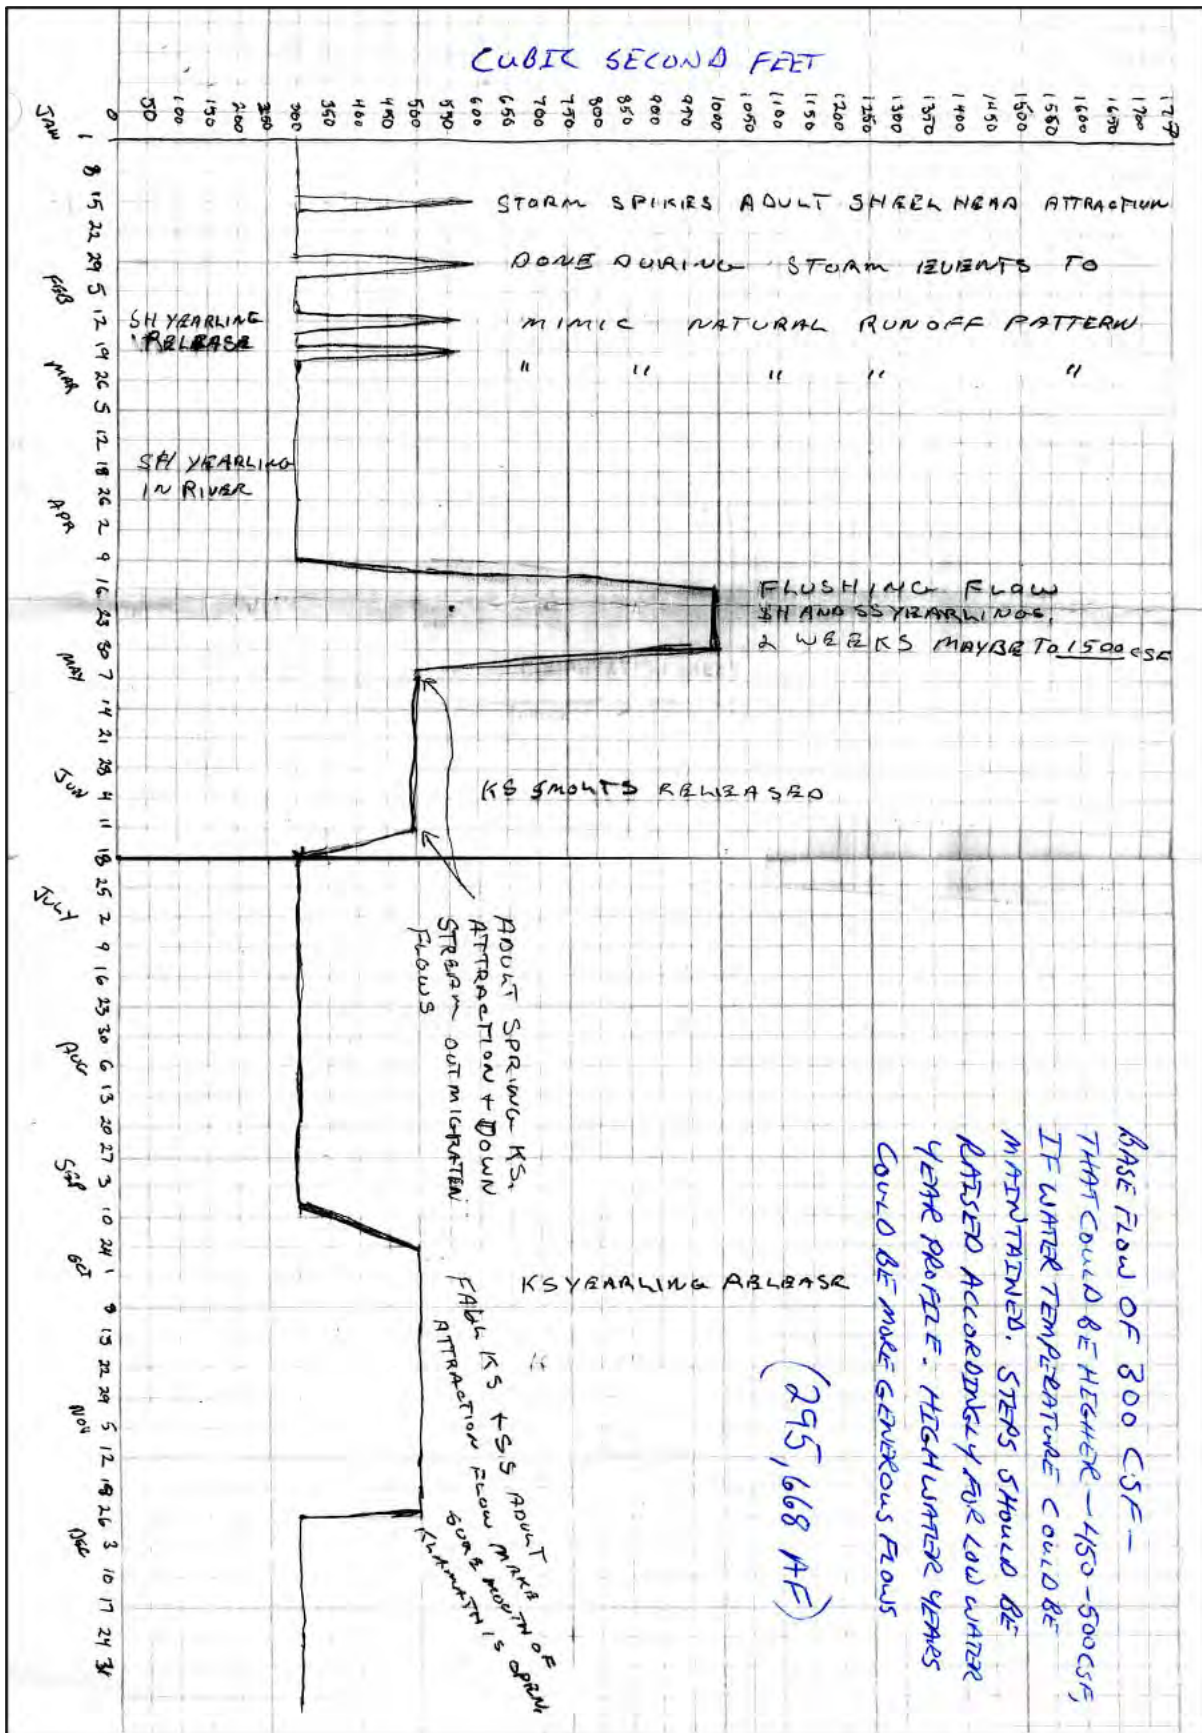 CUBIC SECOND FEET
0 50 100 150 200 250 300 350 400 450 500 550 600 650 700 750 800 850 900 950 1000 1050 1100 1150 1200 1250 1300 1350 1400 1450 1500 1550 1600 1650 1700
JAN
1
8
15
22
29
FEB
5
12
19
MAR
26
5
12
18
26
APR
2
9
16
23
30
MAY
7
14
21
28
JUN
4
11
18
25
JULY
2
9
16
23
30
AUG
6
13
20
27
SEP
3
10
24
OCT
1
8
15
22
29
NOV
5
12
19
26
DEC
3
10
17
24
31
STORM SPIKIES ADULT SHEELHEAD ATTRACTION
DONE DURING STORM EVENTS TO
MIMIC NATURAL RUNOFF PATTERN
" " " " "
SH YEARLING
RELEASE
SH YEARLING
IN RIVER
FLUSHING FLOW
SH AND SS YEARLINGS,
2 WEEKS MAYBE TO 1500 CSF
KS SMOLTS RELEASED
ADULT SPRING KS.
ATTRACTION + DOWN
STREAM OUTMIGRATEN
FLOWS
KS YEARLING RELEASE
"
FALL KS + SS ADULT
ATTRACTION FLOW MAKE
SURE MOUTH OF
KLAMATH IS OPEN.
BASE FLOW OF 300 CSF -
THAT COULD BE HIGHER - 450-500 CSF,
IF WATER TEMPERATURE COULD BE
MAINTAINED. STEPS SHOULD BE
RAISED ACCORDINGLY FOR LOW WATER
YEAR PROFILE. HIGH WATER YEARS
COULD BE MORE GENEROUS FLOWS
(295,668 AF)